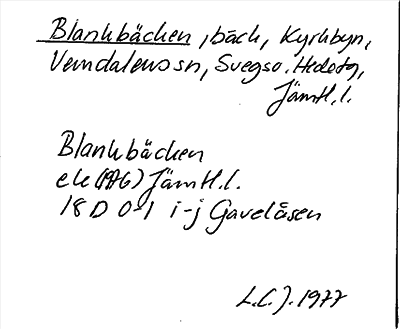 Blankbäcken, bäck, Kyrkbyn,
Vemdalens sn, Svegs o. Hedetg,
Jämtl. l.
Blankbäcken
ek (1976) Jämtl. l.
18 D 0-1 i-j Gavelåsen
L.C.J. 1977